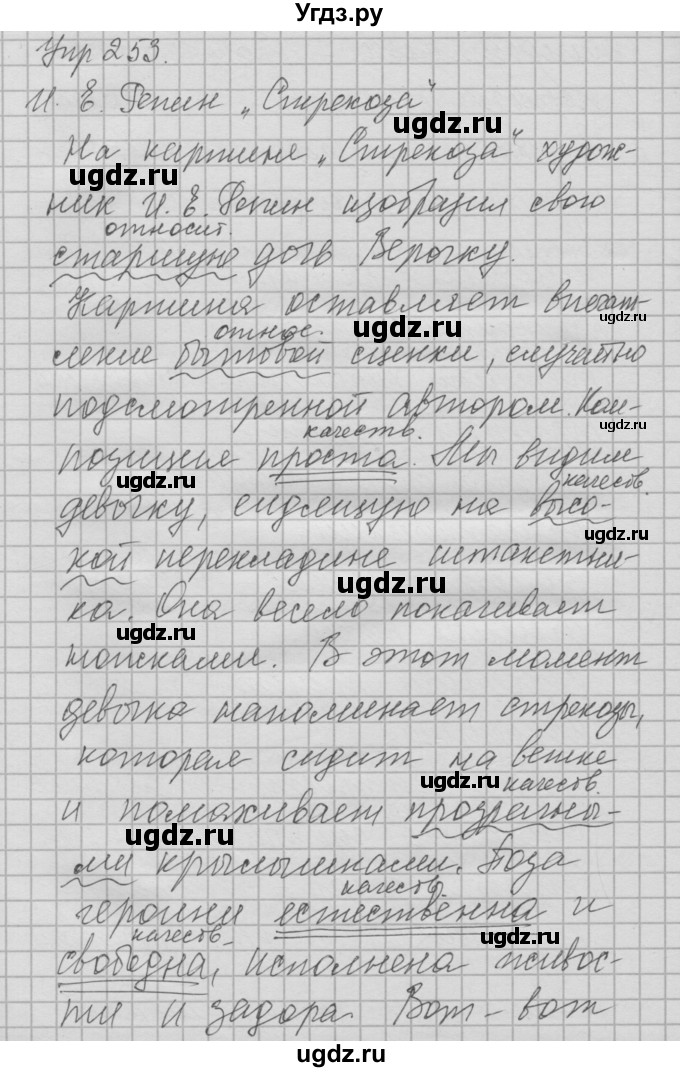 Угдз.ру
Упр 253.
И. Е. Репин „Стрекоза"
ugdz.ru
На картине „Стрекоза" худож-
ugdz.ru
ник И. Е. Репин изобразил свою
относит.
старшую дочь Верочку.
Картина оставляет впечат-
ugdz.ru
относ. ugdz.ru
ление бытовой сценки, случайно
подсмотренной автором. Ком-
ugdz.ru
качеств.
позиция проста. Мы видим
ugdz.ru качеств.
девочку, сидящую на высо-
ugdz.ru
кой перекладине штакетни-
ugdz.ru
ка. Она весело покачивает
ugdz.ru
ножками. В этот момент
девочка напоминает стрекозу,
которая сидит на ветке
ugdz.ru качеств.
и помахивает прозрачны-
ugdz.ru
ми крылышками. Поза
качеств.
героини естественна и
качеств. ugdz.ru
свободна, исполнена живос-
ugdz.ru
ти и задора. Вот-вот
ugdz.ru